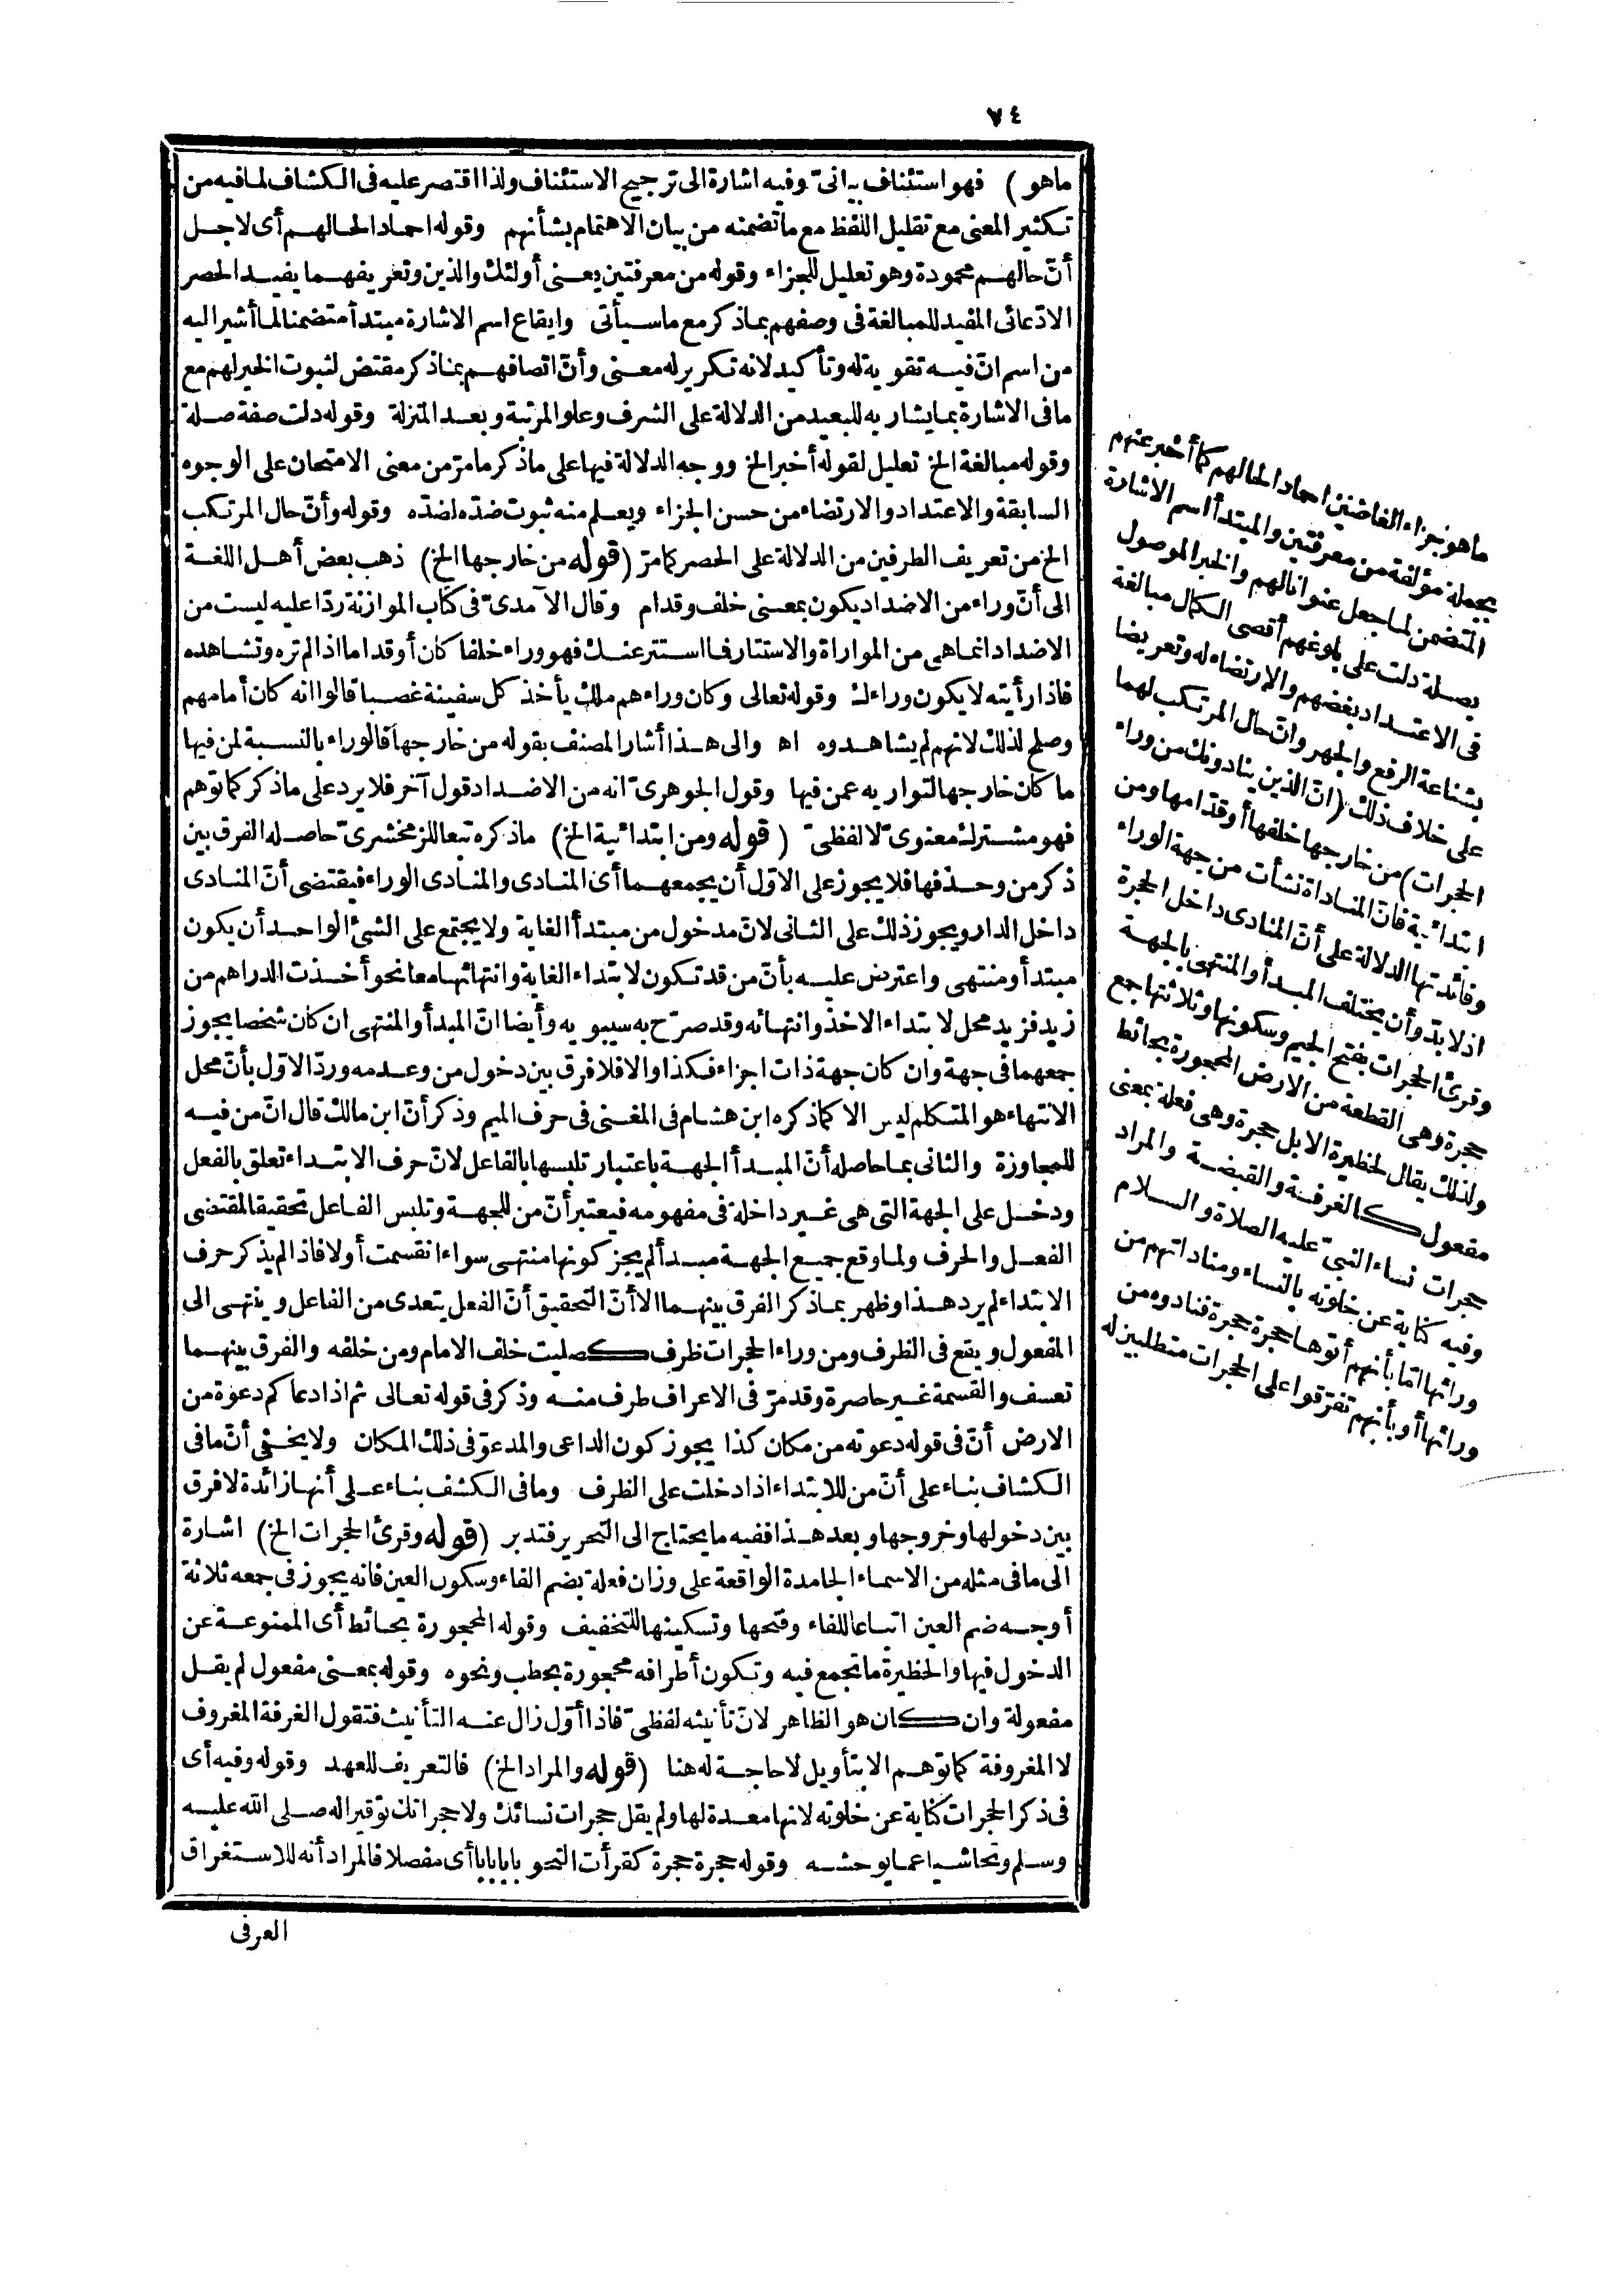 ٧٤
ماهو) فهو استئناف بيانىّ وفيه اشارة الى ترجيح الاستئناف ولذا اقتصر عليه فى الكشاف لما فيه من
تكثير المعنى مع تقليل اللفظ مع ما تضمنه من بيان الاهتمام بشأنهم وقوله احمادا لحالهم أى لاجل
أنّ حالهم محمودة وهو تعليل للجزاء وقوله من معرفتين يعنى أولئك والذين وتعريفهما يفيد الحصر
الادّعائى المفيد للمبالغة فى وصفهم بما ذكر مع ما سيأتى وايقاع اسم الاشارة مبتدأ متضمنا لما أشير اليه
من اسم انّ فيه تقوية له وتأكيد لانه تكرير له معنى وأنّ اتصافهم بما ذكر مقتض لثبوت الخبر لهم مع
ما فى الاشارة بما يشار به للبعيد من الدلالة على الشرف وعلو المرتبة وبعد المنزلة وقوله دلت صفة صلة
وقوله مبالغة الخ تعليل لقوله أخبر الخ ووجه الدلالة فيها على ما ذكر ما مرّ من معنى الامتحان على الوجوه
السابقة والاعتداد والارتضاء من حسن الجزاء ويعلم منه ثبوت ضدّه لضدّه وقوله وأنّ حال المرتكب
الخ من تعريف الطرفين من الدلالة على الحصر كما مرّ (قوله من خارجها الخ) ذهب بعض أهل اللغة
الى أنّ وراء من الاضداد يكون بمعنى خلف وقدام وقال الآمدىّ فى كتاب الموازنة ردّا عليه ليست من
الاضداد انما هى من المواراة والاستتار فما استتر عنك فهو وراء خلفا كان أو قداما اذا لم تره وتشاهده
فاذا رأيته لا يكون وراءك وقوله تعالى وكان وراءهم ملك يأخذ كل سفينة غصبا قالوا انه كان أمامهم
وصلح لذلك لانهم لم يشاهدوه اه والى هذا أشار المصنف بقوله من خارجها فالوراء بالنسبة لمن فيها
ما كان خارجها لتواريه عمن فيها وقول الجوهرىّ انه من الاضداد قول آخر فلا يرد على ما ذكر كما توهم
فهو مشترك معنوىّ لا لفظىّ (قوله ومن ابتدائية الخ) ما ذكره تبعا للزمخشرىّ حاصله الفرق بين
ذكر من وحذفها فلا يجوز على الاوّل أن يجمعهما أى المنادى والمنادى الوراء فيقتضى أنّ المنادى
داخل الدار ويجوز ذلك على الثانى لانّ مدخول من مبتدأ الغاية ولا يجتمع على الشئ الواحد أن يكون
مبتدأ ومنتهى واعترض عليه بأنّ من قد تكون لابتداء الغاية وانتهائها معا نحو أخذت الدراهم من
زيد فزيد محل لابتداء الاخذ وانتهائه وقد صرّح به سيبويه وأيضا انّ المبدأ والمنتهى ان كان شخصا يجوز
جمعهما فى جهة وان كان جهة ذات اجزاء فكذا والا فلا فرق بين دخول من وعدمه وردّ الاوّل بأنّ محل
الانتهاء هو المتكلم ليس الا كما ذكره ابن هشام فى المغنى فى حرف الميم وذكر أنّ ابن مالك قال انّ من فيه
للمجاوزة والثانى بما حاصله أنّ المبدأ الجهة باعتبار تلبسها بالفاعل لانّ حرف الابتداء تعلق بالفعل
ودخل على الجهة التى هى غير داخلة فى مفهومه فيعتبر أنّ من للجهة وتلبس الفاعل تحقيقا لمقتضى
الفعل والحرف ولما وقع جميع الجهة مبدأ لم يجز كونها منتهى سواء انقسمت أولا فاذا لم يذكر حرف
الابتداء لم يرد هذا وظهر بما ذكر الفرق بينهما الا أنّ التحقيق أنّ الفعل يتعدى من الفاعل وينتهى الى
المفعول ويقع فى الظرف ومن وراء الحجرات ظرف كصليت خلف الامام ومن خلفه والفرق بينهما
تعسف والقسمة غير حاصرة وقد مرّ فى الاعراف طرف منه وذكر فى قوله تعالى ثم اذا دعاكم دعوة من
الارض أنّ فى قوله دعوته من مكان كذا يجوز كون الداعى والمدعوّ فى ذلك المكان ولا يخفى أنّ ما فى
الكشاف بناء على أنّ من للابتداء اذا دخلت على الظرف وما فى الكشف بناء على أنها زائدة لا فرق
بين دخولها وخروجها وبعد هذا ففيه ما يحتاج الى التحرير فتدبر (قوله وقرئ الحجرات الخ) اشارة
الى ما فى مثله من الاسماء الجامدة الواقعة على وزان فعلة بضم الفاء وسكون العين فانه يجوز فى جمعه ثلاثة
أوجه ضم العين اتباعا للفاء وفتحها وتسكينها للتخفيف وقوله المحجورة بحائط أى الممنوعة عن
الدخول فيها والحظيرة ما تجمع فيه وتكون أطرافه محجورة بحطب ونحوه وقوله بمعنى مفعول لم يقل
مفعولة وان كان هو الظاهر لانّ تأنيثه لفظىّ فاذا أوّل زال عنه التأنيث فتقول الغرفة المغروف
لا المغروفة كما توهم الا بتأويل لا حاجة له هنا (قوله والمراد الخ) فالتعريف للعهد وقوله وفيه أى
فى ذكر الحجرات كناية عن خلوته لانها معدة لها ولم يقل حجرات نسائك ولا حجراتك توقيرا له صلى الله عليه
وسلم وتحاشيا عما يوحشه وقوله حجرة حجرة كقرأت النحو بابا بابا أى مفصلا فالمراد أنه للاستغراق
العرفى
ما هو جزاء الغاضين احمادا لحالهم كما أخبر عنهم
بجملة مؤلفة من معرفتين والمبتدأ اسم الاشارة
المتضمن لما جعل عنوانا لهم والخبر الموصول
بصلة دلت على بلوغهم أقصى الكمال مبالغة
فى الاعتداد بغضهم والارتضاء له وتعريضا
بشناعة الرفع والجهر وانّ حال المرتكب لهما
على خلاف ذلك (انّ الذين ينادونك من وراء
الحجرات) من خارجها خلفها أو قدّامها ومن
ابتدائية فانّ المناداة نشأت من جهة الوراء
وفائدتها الدلالة على أنّ المنادى داخل الحجرة
اذ لابدّ وأن يختلف المبدأ والمنتهى بالجهة
وقرئ الحجرات بفتح الجيم وسكونها وثلاثتها جمع
حجرة وهى القطعة من الارض المحجورة بحائط
ولذلك يقال لحظيرة الابل حجرة وهى فعلة بمعنى
مفعول كالغرفة والقبضة والمراد
حجرات نساء النبىّ عليه الصلاة والسلام
وفيه كناية عن خلوته بالنساء ومناداتهم من
ورائها امّا بأنهم أتوها حجرة حجرة فنادوه من
ورائها أو بأنهم تفرّقوا على الحجرات متطلبين له